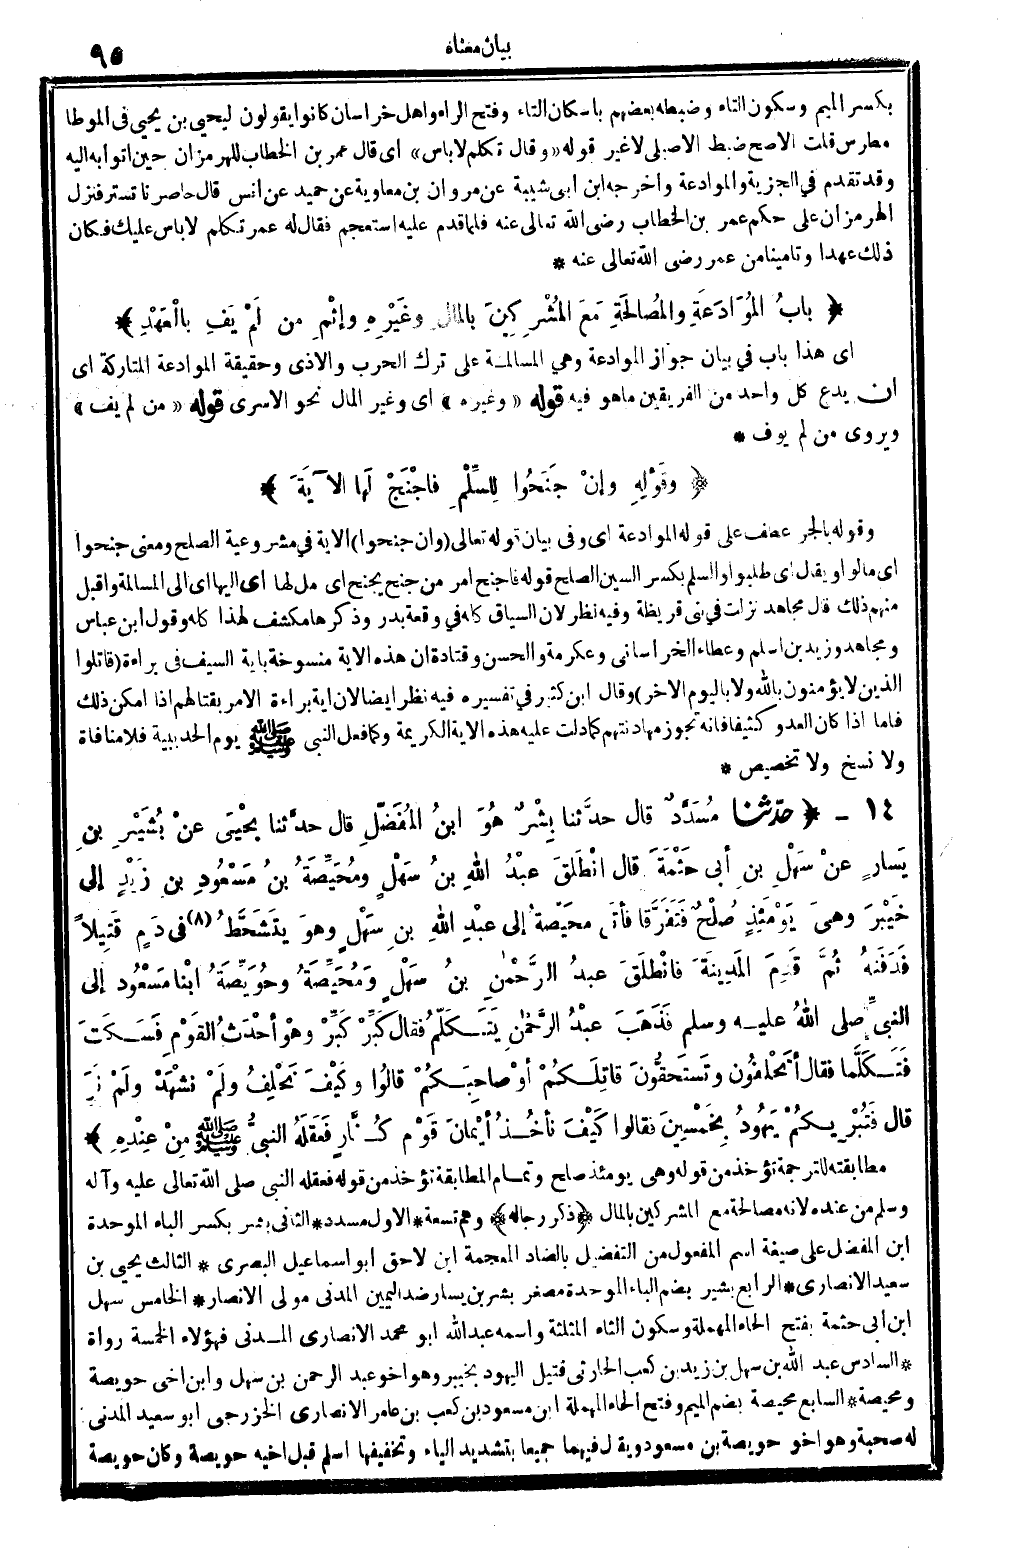 بيان معناه
٩٥
بكسر الميم وسكون التاء وضبطه بعضهم باسكان التاء وفتح الراء واهل خراسان كانوا يقولون ليحيى بن يحيى فى الموطا
مطارس قلت الاصح ضبط الاصيلى لاغير قوله «وقال تكلم لاباس» اى قال عمر بن الخطاب للهرمزان حين اتوا به اليه
وقد تقدم في الجزية والموادعة وأخرجه ابن ابى شيبة عن مروان بن معاوية عن حميد عن انس قال حاصرنا تستر فنزل
الهرمزان على حكم عمر بن الخطاب رضى الله تعالى عنه فلما قدم عليه استعجم فقال له عمر تكلم لاباس عليك فكان
ذلك عهدا وتامينا من عمر رضى الله تعالى عنه *
﴿ بابُ المُوَادَعَةِ والمُصالَحَةِ مَعَ المُشْرِكِينَ بالمَالِ وغَيْرِهِ وإثْمِ من لَمْ يَفِ بالْعَهْدِ ﴾
اى هذا باب في بيان جواز الموادعة وهي المسالمة على ترك الحرب والاذى وحقيقة الموادعة المتاركة اى
ان يدع كل واحد من الفريقين ماهو فيه قوله «وغيره» اى وغير المال نحو الاسرى قوله «من لم يف»
ويروى من لم يوف *
﴿ وقَوْلِهِ وإنْ جَنَحُوا لِلسِّلْمِ فاجْنَحْ لَها الآيَةَ ﴾
وقوله بالجر عطف على قوله الموادعة اى وفى بيان قوله تعالى (وان جنحوا) الاية في مشروعية الصلح ومعنى جنحوا
اى مالوا ويقال اى طلبوا والسلم بكسر السين الصلح قوله فاجنح امر من جنح يجنح اى مل لها اى اليها اى الى المسالمة واقبل
منهم ذلك قال مجاهد نزلت في بنى قريظة وفيه نظر لان السياق كله في وقعة بدر وذكرها مكشف لهذا كله وقول ابن عباس
ومجاهد وزيد بن اسلم وعطاء الخراسانى وعكرمة والحسن وقتادة ان هذه الاية منسوخة باية السيف فى براءة (قاتلوا
الذين لايؤمنون بالله ولا باليوم الاخر) وقال ابن كثير في تفسيره فيه نظر ايضا لان اية براءة الامر بقتالهم اذا امكن ذلك
فاما اذا كان العدو كثيفا فانه تجوز مهادنتهم كمادلت عليه هذه الاية الكريمة وكما فعل النبى ﷺ يوم الحديبية فلا منافاة
ولا نسخ ولا تخصيص *
١٤ - ﴿ حدّثنا مُسَدَّدٌ قال حدَّثنا بِشْرٌ هُوَ ابنُ المُفَضَّلِ قال حدَّثنا يَحْيَى عنْ بُشَيْرِ بنِ
يَسارٍ عنْ سَهْلِ بنِ أبى حَثْمَةَ قال انْطَلَقَ عبْدُ اللهِ بنُ سَهْلٍ ومُحَيِّصَةُ بنُ مَسْعُودِ بنِ زَيْدٍ إلى
خَيْبَرَ وهىَ يَوْمَئِذٍ صُلْحٌ فَتَفَرَّقا فأتَى محَيِّصَةُ إلى عبْدِ اللهِ بنِ سَهْلٍ وهوَ يتَشَحَّطُ (٨) فى دَمٍ قَتِيلاً
فَدَفَنَهُ ثُمَّ قَدِمَ المَدِينَةَ فانْطلَقَ عبدُ الرَّحْمٰنِ بنُ سَهْلٍ ومُحَيِّصَةُ وحُوَيِّصَةُ ابْنا مَسْعُود إلى
النبىِّ صلى اللهُ عليه وسلم فَذَهَبَ عبْدُ الرَّحْمٰنِ يَتَكَلَّمُ فقال كَبِّرْ كَبِّرْ وهوَ أحْدَثُ القَوْمِ فَسَكَتَ
فَتَكَلَّما فقال أتَحْلِفُون وتَستَحِقُّونَ قاتِلَكُمْ أوْ صاحِبَكُمْ قالُوا وكَيْفَ نَحْلِفُ ولَمْ نَشْهَدْ ولَمْ نَرَ
قال فَتُبْرِيكُمْ يَهُودُ بِخَمْسِينَ فقالوا كَيْفَ نأخُذُ أيْمانَ قَوْمٍ كُفَّارٍ فَعَقَلَهُ النبىُّ ﷺ مِنْ عِنْدِهِ ﴾
مطابقته للترجمة تؤخذ من قوله وهى يومئذ صلح وتمام المطابقة تؤخذ من قوله فعقله النبى صلى الله تعالى عليه وآله
وسلم من عنده لانه مصالحة مع المشركين بالمال ﴿ذكر رجاله﴾ وهم تسعة * الاول مسدد * الثانى بشر بكسر الباء الموحدة
ابن المفضل على صيغة اسم المفعول من التفضيل بالضاد المعجمة ابن لاحق ابو اسماعيل البصرى * الثالث يحيى بن
سعيد الانصارى * الرابع بشير بضم الباء الموحدة مصغر بشر بن يسار ضد اليمين المدنى مولى الانصار * الخامس سهل
ابن ابى حثمة بفتح الحاء المهملة وسكون الثاء المثلثة واسمه عبدالله ابو محمد الانصارى المدنى فهؤلاء الخمسة رواة
* السادس عبد الله بن سهل بن زيد بن كعب الحارثى قتيل اليهود بخيبر وهو اخو عبد الرحمن بن سهل وابن اخى حويصة
ومحيصة * السابع محيصة بضم الميم وفتح الحاء المهملة ابن مسعود بن كعب بن عامر الانصارى الخزرجى ابو سعيد المدنى
له صحبة وهو اخو حويصة بن مسعود ويقال فيهما جميعا بتشديد الياء وتخفيفها اسلم قبل اخيه حويصة وكان حويصة